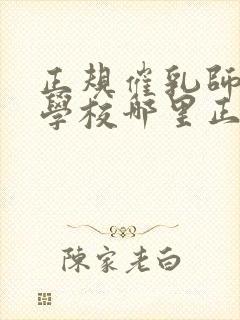 正規催乳師
學校哪里正
陳家老白